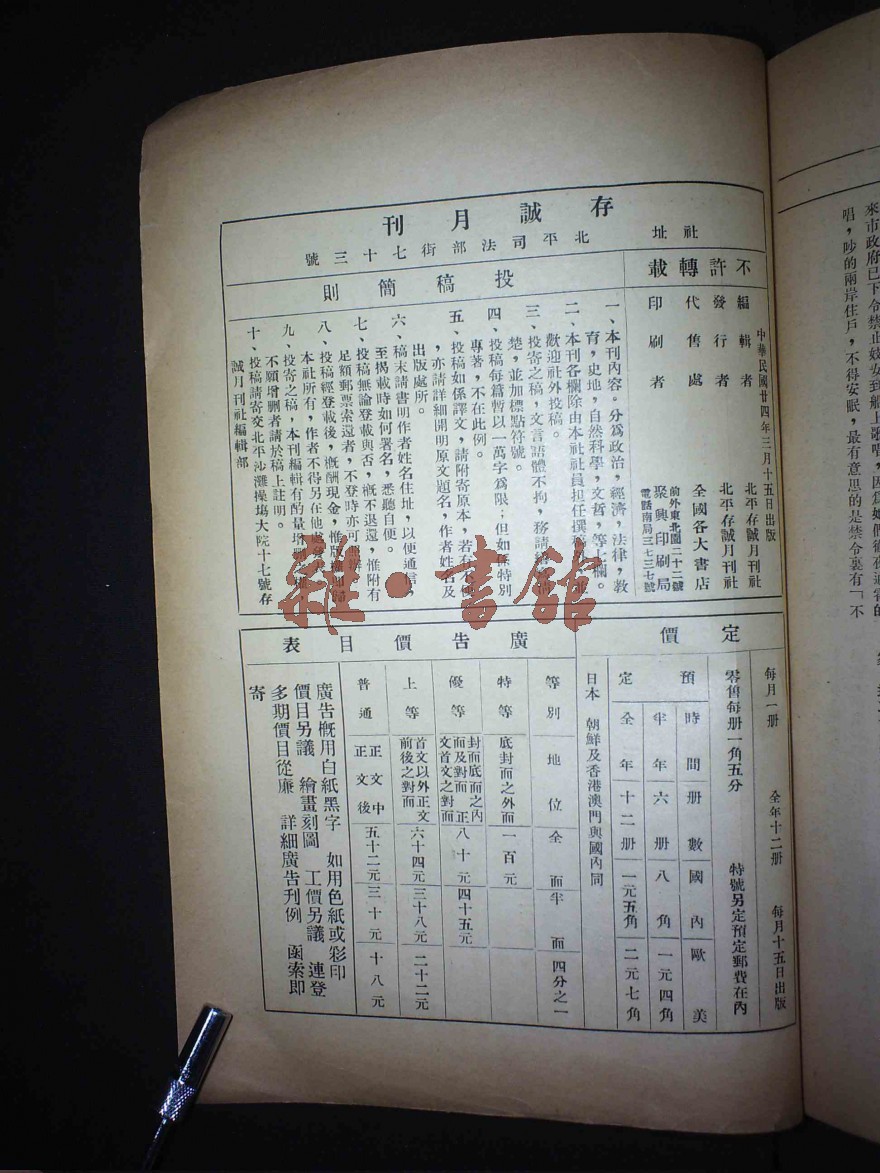 存誠月刊
社址 北平司法部街七十三號
中華民國廿四年三月十五日出版
不許轉載
編輯者 北平存誠月刊社
發行者 北平存誠月刊社
代售處 全國各大書店
印刷者 前外東北園二十二號
聚興印刷局
電話南局三七三七號
投稿簡則
一、本刊內容。分爲政治，經濟，法律，教
育，史地，自然科學，文哲，等七欄。
二、本刊各欄除由本社社員担任撰
歡迎社外投稿。
三、投寄之稿，文言語體不拘，務請
楚，並加標點符號。
四、投稿每篇暫以一萬字爲限；但如係特別
專著，不在此例。
五、投稿如係譯文，請附寄原本，若有不便
，亦請詳細開明原文題名，作者姓名及
出版處所。
六、稿末請書明作者姓名住址，以便通信，
至揭載時如何署名，悉聽自便。
七、投稿無論登載與否，槪不退還，惟附有
足額郵票索還者，不登時亦可
八、投稿經登載後，槪酬現金，惟版
本社所有，作者不得另在他處
九、投寄之稿，本刊編輯有酌量增删
不願增删者請於稿上註明。
十、投稿請寄交北平沙灘操塲大院十七號存
誠月刊社編輯部
定價
每月一册 全年十二册 每月十五日出版
零售每册一角五分 特號另定預定郵費在內
預定
時間 册數 國內 歐美
半年 六册 八角 一元四角
全年 十二册 一元五角 二元七角
日本 朝鮮及香港澳門與國內同
廣告價目表
等別 地位 全面 半面 四分之一
特等 底封面之外面 一百元
優等 封面底面之內面及對面正文首文之對面 八十元 四十五元
上等 首文以外正文前後之對面 六十四元 三十八元 二十二元
普通 正文中正文後 五十二元 三十元 十八元
廣告槪用白紙黑字 如用色紙或彩印
價目另議 繪畫刻圖 工價另議 連登
多期價目從廉 詳細廣告刊例 函索卽
寄
來市政府已下令禁止妓女到船上歌唱，因爲她們徹夜通宵的
唱，吵的兩岸住戶，不得安眠，最有意思的是禁令裏有「不
雜·書館